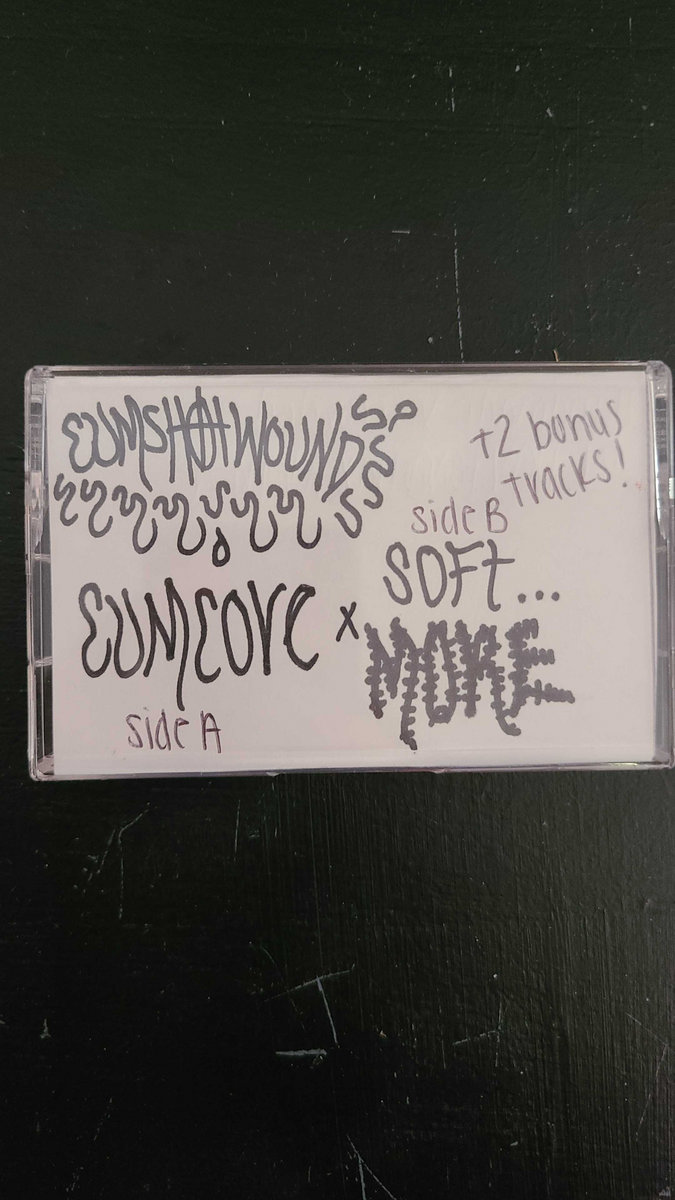 CUMSHOTWOUNDS
+2 bonus
tracks!
CUMCORE
side A
x
side B
SOFT...
MORE